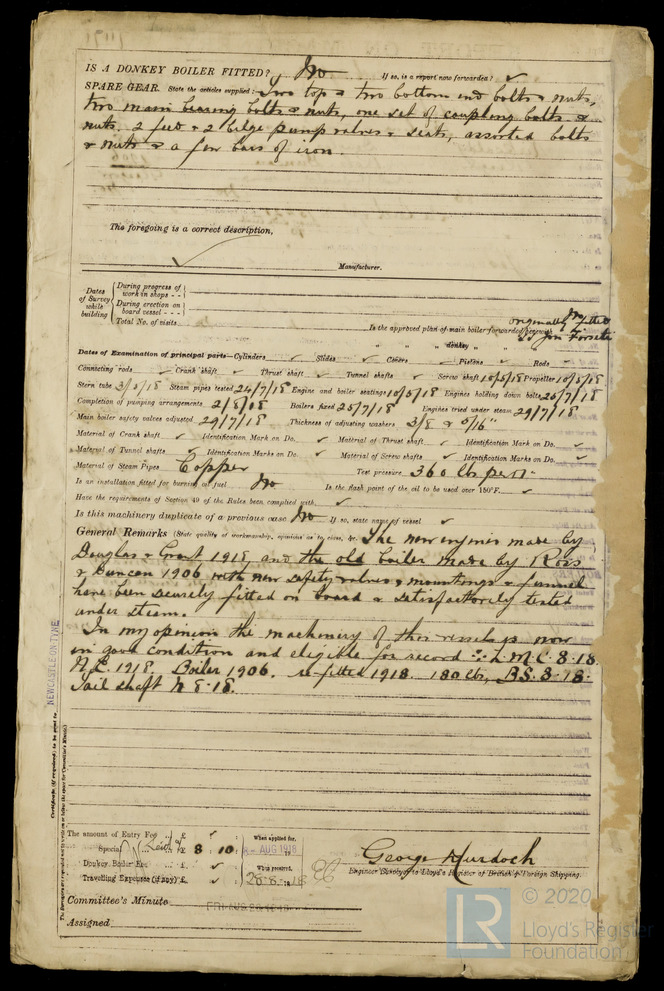 IS A DONKEY BOILER FITTED? No If so, is a report now forwarded? ✓
SPARE GEAR. State the articles supplied:— Two top & two bottom end bolts & nuts,
two main bearing bolts & nuts, one set of coupling bolts &
nuts. 2 feed & 2 bilge pump valves & seats, assorted bolts
& nuts & a few bars of iron.
The foregoing is a correct description,
Manufacturer.
Dates of Survey while building
During progress of work in shops - -
During erection on board vessel - - -
Total No. of visits
Is the approved plan of main boiler forwarded herewith No
originally fitted
SS Jon Forseti
" " " donkey " " "
Dates of Examination of principal parts—Cylinders ✓ Slides ✓ Covers ✓ Pistons ✓ Rods ✓
Connecting rods ✓ Crank shaft ✓ Thrust shaft ✓ Tunnel shafts ✓ Screw shaft 10/5/18 Propeller 10/5/18
Stern tube Steam pipes tested 24/7/18 Engine and boiler seatings 10/5/18 Engines holding down bolts 20/7/18
Completion of pumping arrangements 2/8/18 Boilers fixed 20/7/18 Engines tried under steam 29/7/18
Main boiler safety valves adjusted 29/7/18 Thickness of adjusting washers 3/8 & 5/16"
Material of Crank shaft ✓ Identification Mark on Do. ✓ Material of Thrust shaft ✓ Identification Mark on Do. ✓
Material of Tunnel shafts ✓ Identification Marks on Do. ✓ Material of Screw shafts ✓ Identification Marks on Do. ✓
Material of Steam Pipes Copper Test pressure 360 lbs per □"
Is an installation fitted for burning oil fuel No Is the flash point of the oil to be used over 150°F. ✓
Have the requirements of Section 49 of the Rules been complied with ✓
Is this machinery duplicate of a previous case No If so, state name of vessel ✓
General Remarks (State quality of workmanship, opinions as to class, &c. The new engines made by
Douglas & Grant 1918, and the old boiler made by Ross
& Duncan 1906 with new safety valves & mountings & funnel
have been securely fitted on board & satisfactorily tested
under steam.
In my opinion the machinery of this vessel is now
in good condition and eligible for record L.M.C. 8.18
N.E. 1918. Boiler 1906. refitted 1918 180 lbs, B.S. 8.18.
Tail shaft N 8.18.
NEWCASTLE-ON-TYNE
Certificate (if required) to be sent to
The amount of Entry Fee .. £ ✓ : When applied for,
Special .. £ 8 : 10 : AUG 1918
Donkey Boiler Fee .. £ ✓ : When received,
Travelling Expenses (if any) £ ✓ :
George Murdoch
Engineer Surveyor to Lloyd's Register of British & Foreign Shipping.
Committee's Minute
Assigned
LR
© 2020
Lloyd's Register
Foundation